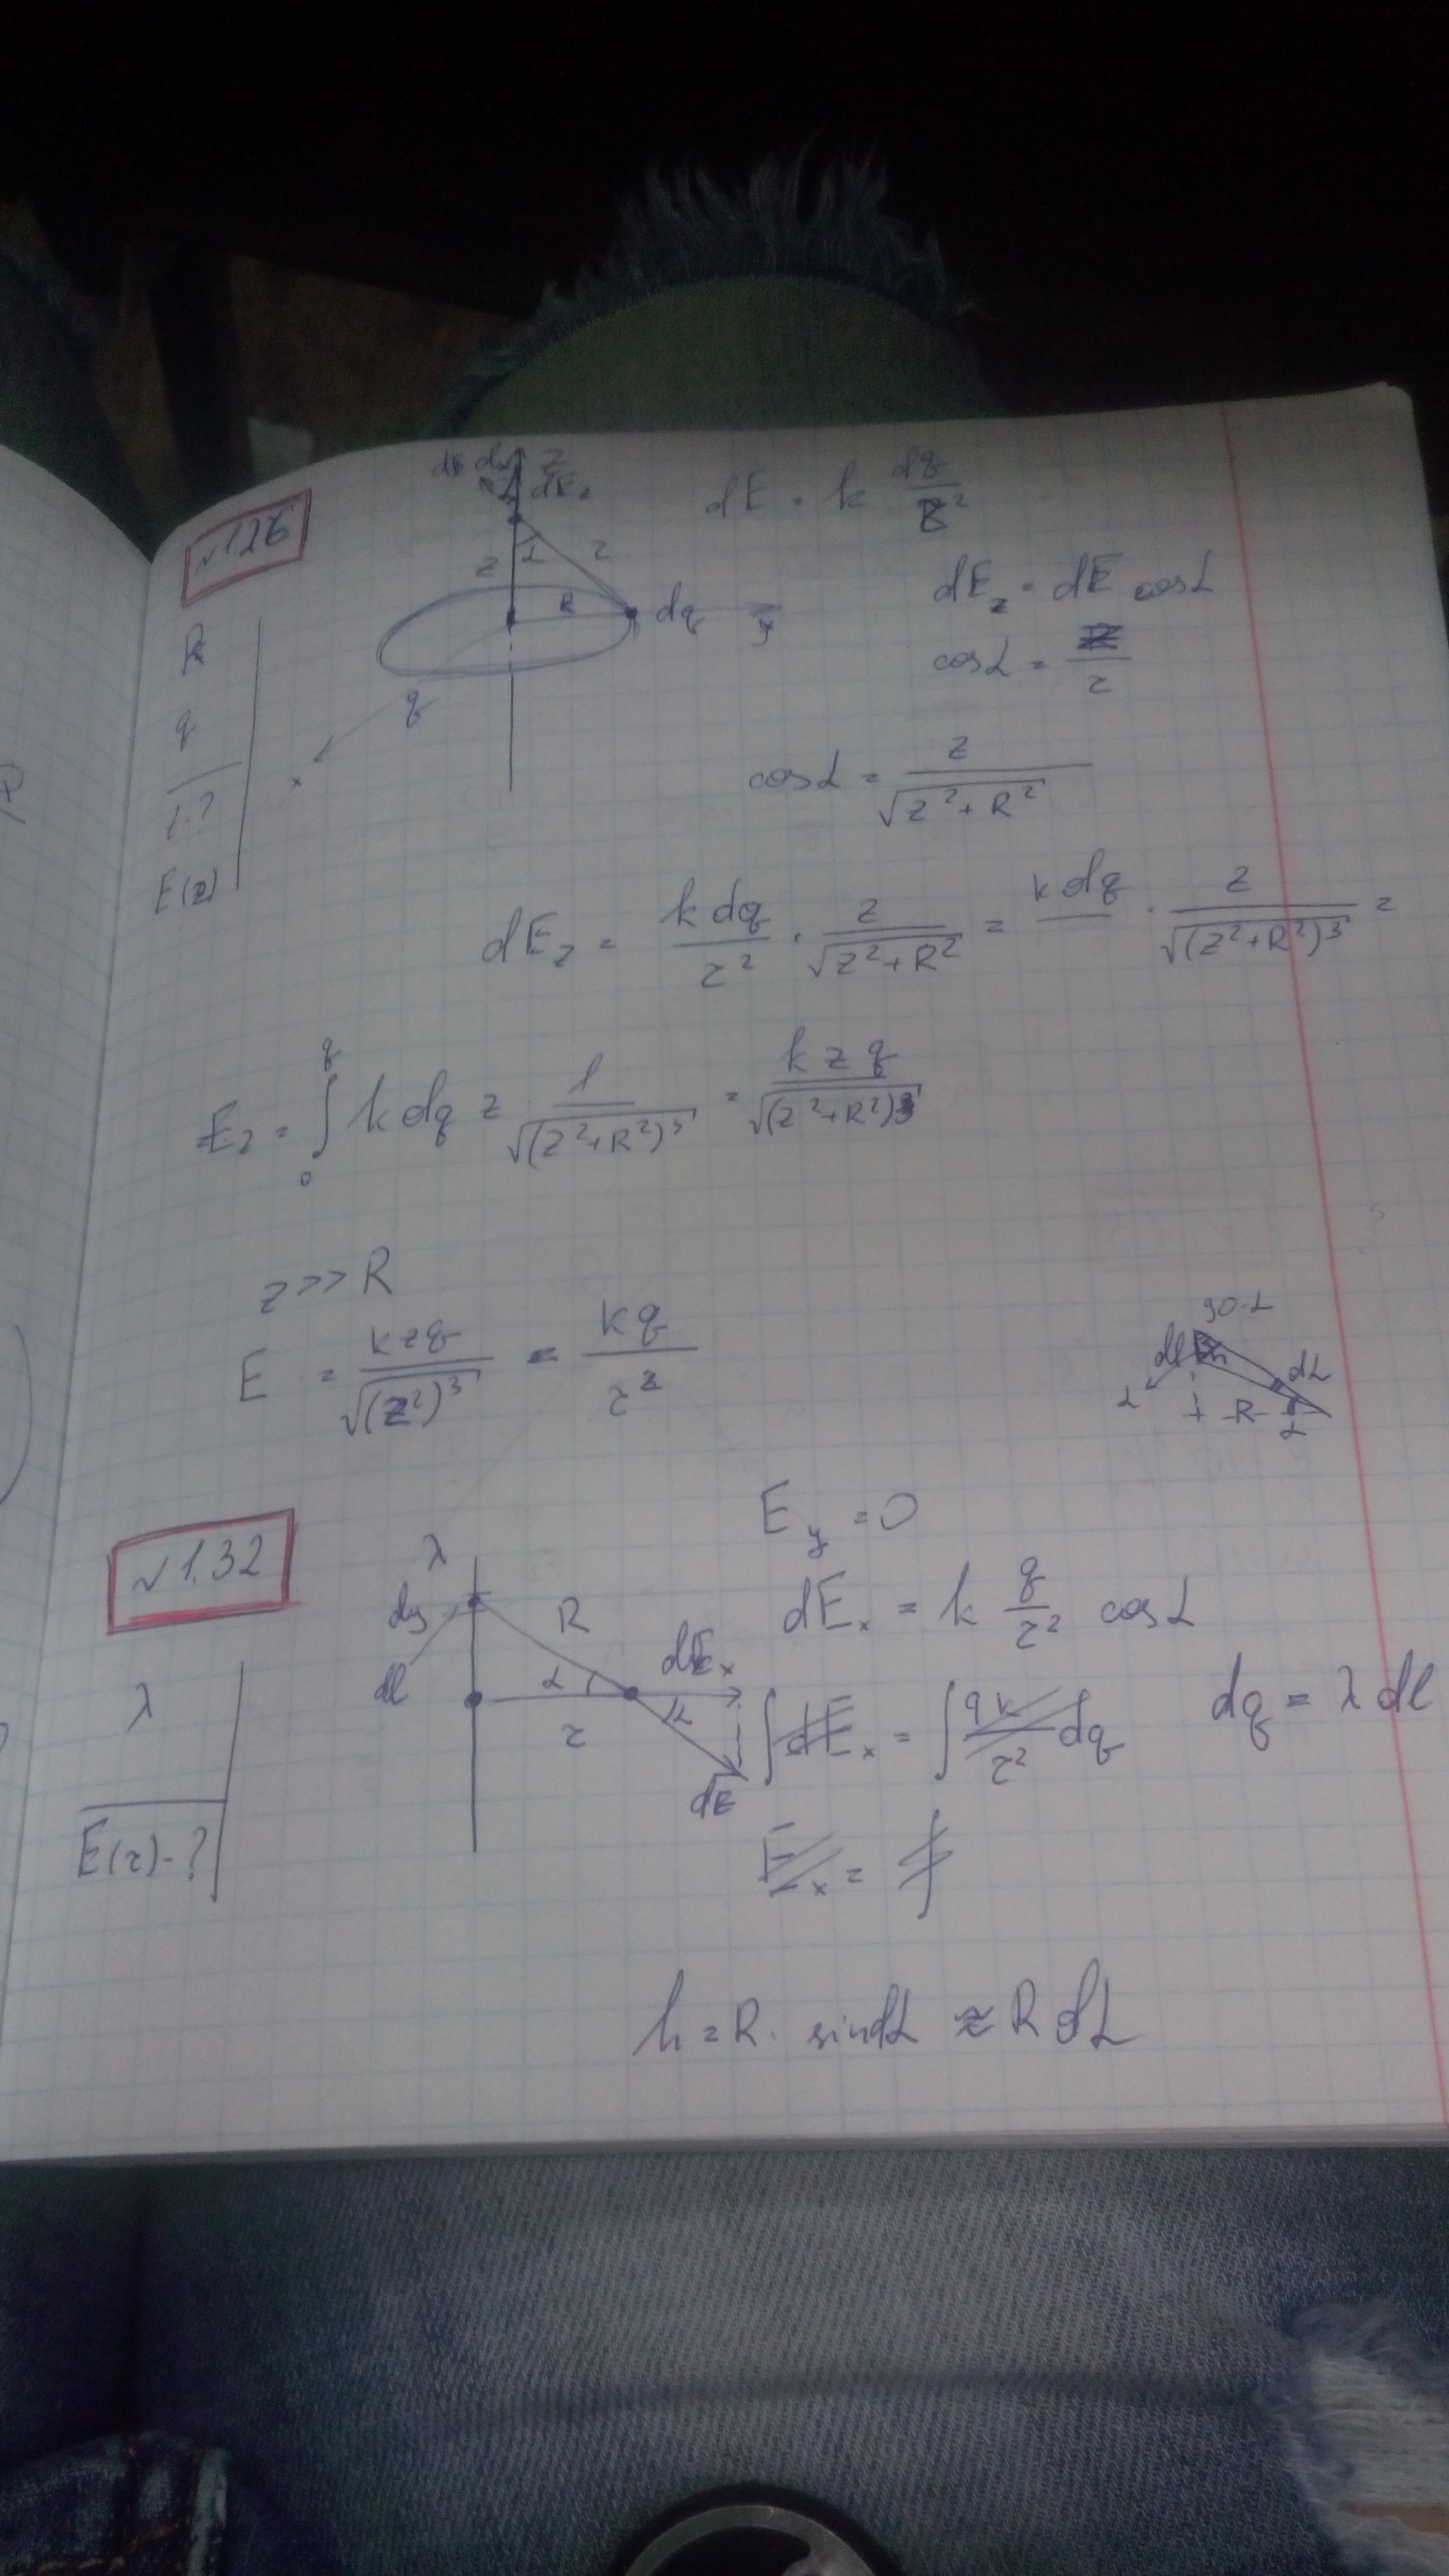 √126
R
q
E(z)
z
dE_z
z
α
r
R
dq
y
q
x
dE = k dq/r²
dE_z = dE cosα
cosα = z/r
cosα = z/√(z²+R²)
dE_z = k dq/r² · z/√(z²+R²) = k dq · z/√((z²+R²)³) =
E_z = ∫₀^q k dq z 1/√((z²+R²)³) = k z q/√((z²+R²)³)
z >> R
E = k z q/√((z²)³) = k q/z²
90-α
dl
dα
α
R
α
√1.32
λ
E(r)-?
λ
dy
dl
R
α
r
dE_x
α
dE
E_y = 0
dE_x = k q/r² cosα
∫dE_x = ∫ qk/r² dq
dq = λ dl
E_x = ∫
h = R · sindα ≈ R dα